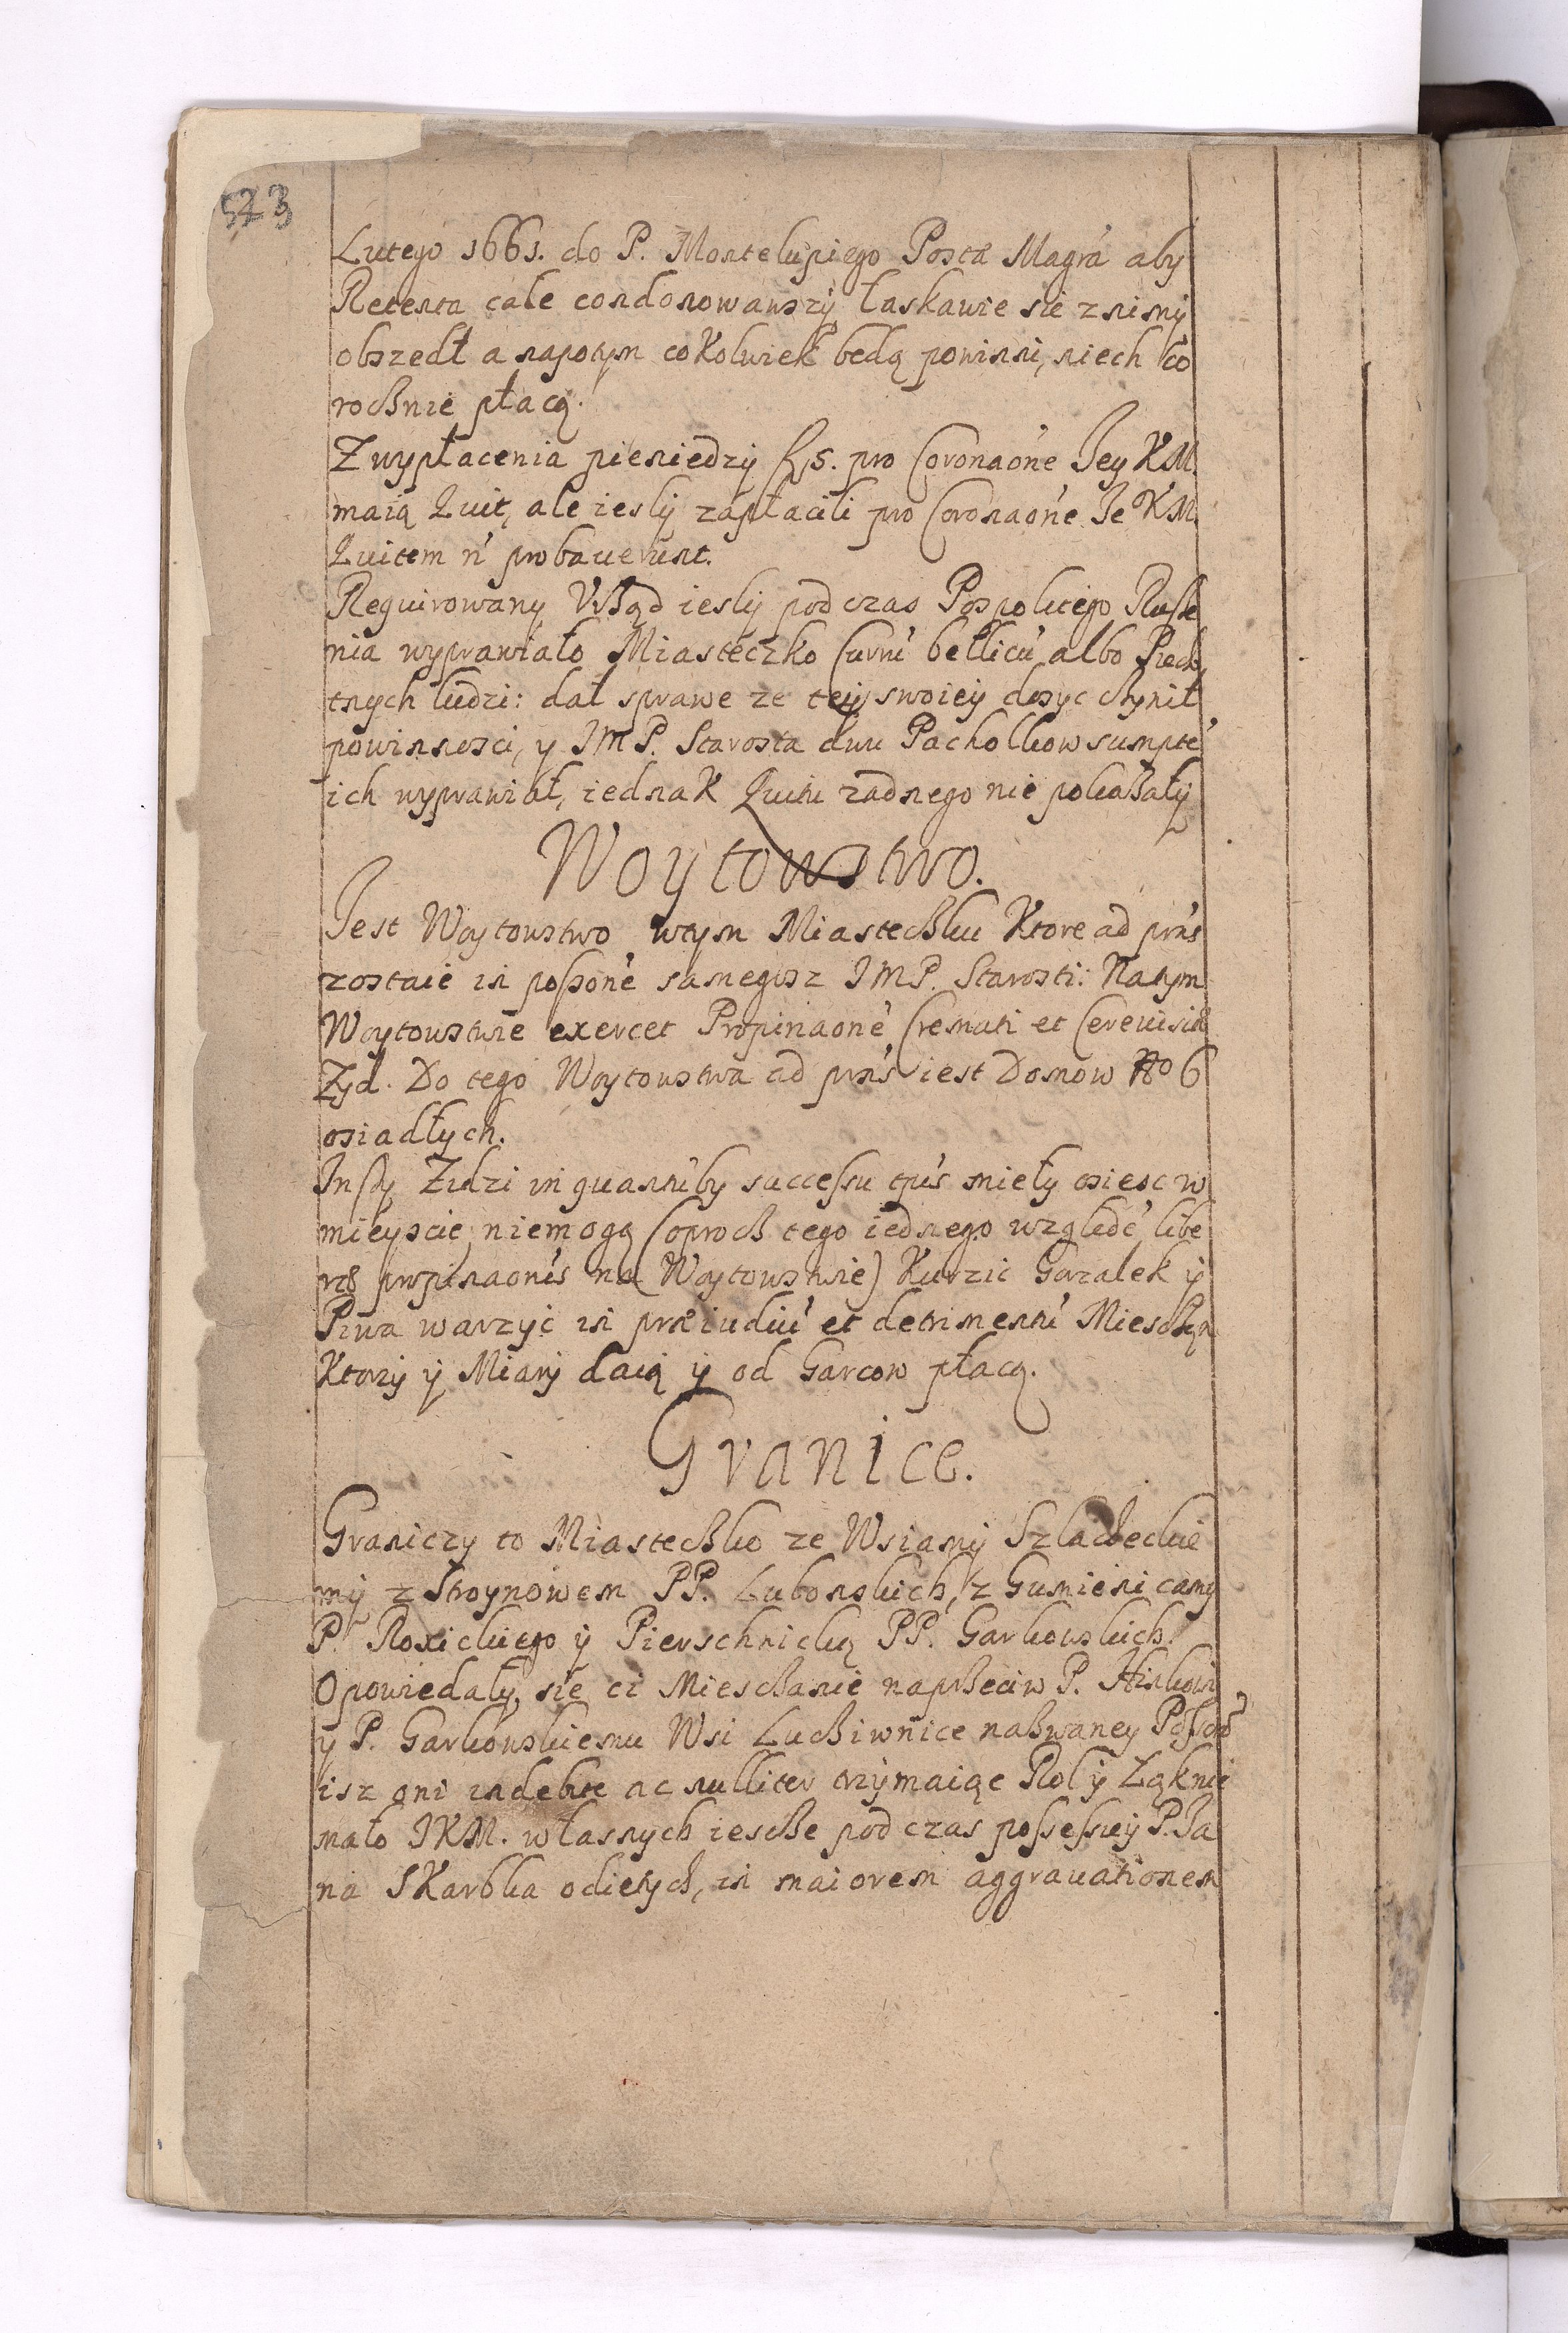 523
Lutego 1661. do P. Montelupiego Posta Magrã aby
Retenta cale condonowawszÿ łaskawie sie znimÿ
obszedł a napotym coKolwiek będą powinni, niech co
rocżnie płacą.
Z wypłacenia pieniedzÿ f. 15. pro Coronaõne Jey KM.
maią Quit, ale ieslÿ zapłacili pro Coronaõne Je KM.
Quitem ñ probauerunt.
Requirowany Vrżąd ieslÿ pod czas Pospolitego Rusze
nia wyprawiało Miasteczko Currũ bellicũ albo Piech
tnych ludzi: dał sprawe ze teÿ swoieÿ dosyc cżynił
powinnosci, y JMP. Starosta dwu Pachołkow sumptẽ
ich wyprawiał, iednaK Quitu zadnego nie pokażałÿ
Woytowstwo.
Jest Woytowstwo wtym Miastecżku Ktore ad prńs
zostaie in possonẽ samegosz JMP. Starosti: Natym
Woytowstwie exercet Propinaonẽ Cremati et Cerevisiæ
Zyd. Do tego Woytowstwa ad prńs iest Domow No 6
osiadłych.
Inszy Zidzi in quantũby successu tpũs mieły osiesc w
mieÿscie, niemogą (oprocż tego iednego względẽ libe
ræ propinaonis na Woytowstwie) Kurzic Garzalek ÿ
Piwa warzÿc in præiudiũ et detrimentũ Miescżan
Ktorzÿ ÿ Miarÿ daią ÿ od Garcow płacą.
Granice.
Graniczy to Miastecżko ze Wsiamÿ Szlacheckie
mÿ z Stroynowem PP. Lubonskich, z Gumienicamy
P. Roxickiego ÿ Pierschnicką PP. Garkowskich.
Opowiedałÿ sie ci Miescżanie naprżeciw P.
y P. Garkowskiemu Wsi Lucżiwnice nażwaney
isz oni indebite ac nulliter trzÿmaiąc Rol ÿ Ląk nie
mało JKM. własnych iescże pod czas possessieÿ P. Ja
na SKarbka odietych, in maiorem aggrauationem